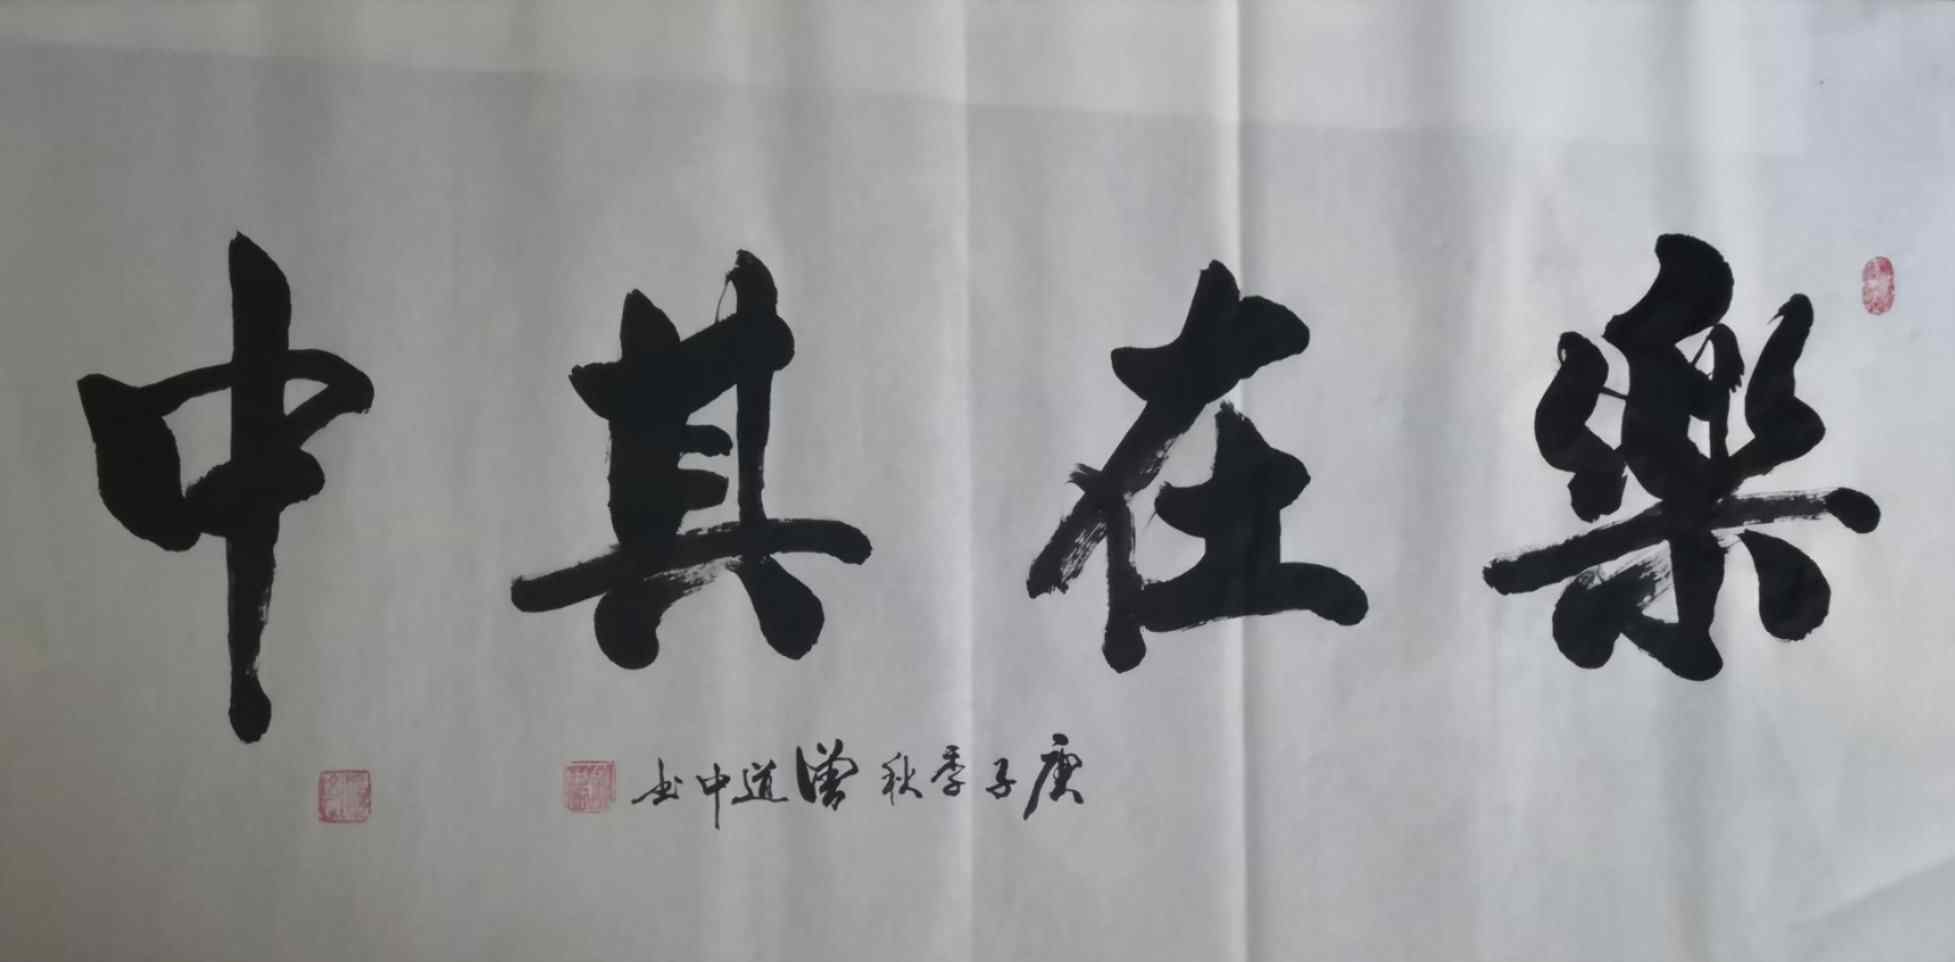 樂在其中
庚子季秋道中书